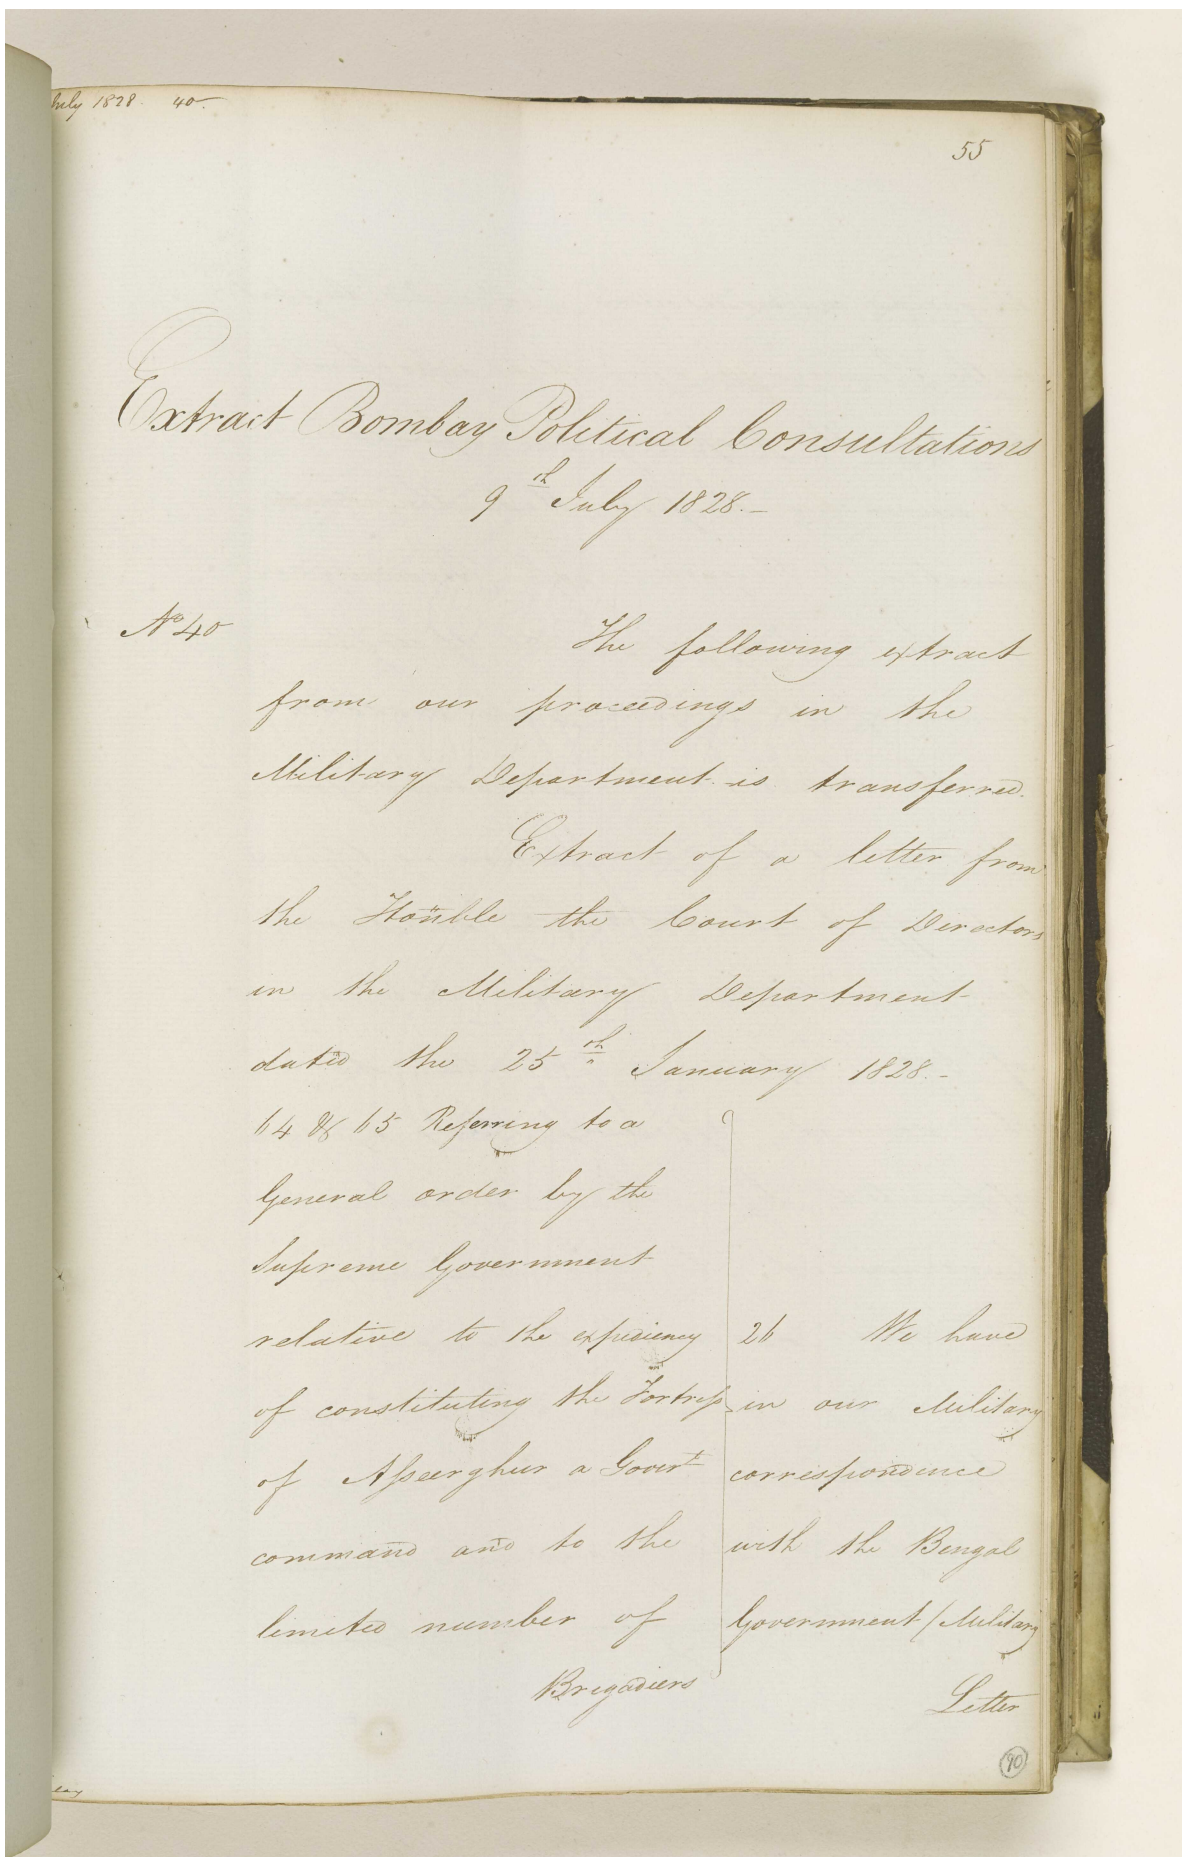 July 1828. 40.
55
Extract Bombay Political Consultations
9th July 1828.-
No 40
The following extract
from our proceedings in the
Military Department is transferred.
Extract of a letter from
the Honble the Court of Directors
in the Military Department
dated the 25th January 1828.-
64 & 65 Referring to a
General order by the
Supreme Government
relative to the expediency
of constituting the Fortress
of Asseerghur a Govert
command and to the
limited number of
Brigadiers
26 We have
in our Military
correspondence
with the Bengal
Government (Military
Letter
90